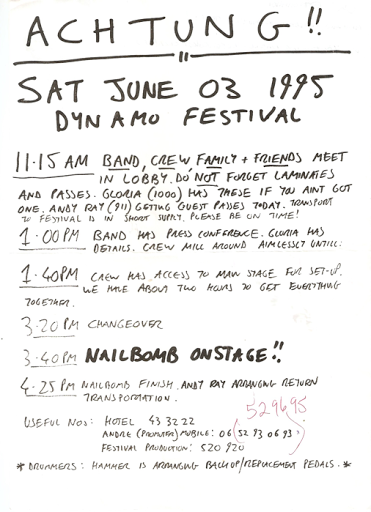 ACHTUNG!!
SAT JUNE 03 1995
DYNAMO FESTIVAL
11:15 AM BAND, CREW FAMILY + FRIENDS MEET
IN LOBBY. DO NOT FORGET LAMINATES
AND PASSES. GLORIA (1000) HAS THESE IF YOU AINT GOT
ONE. ANDY RAY (911) GETTING GUEST PASSES TODAY. TRANSPORT
TO FESTIVAL IS IN SHORT SUPPLY. PLEASE BE ON TIME!
1.00PM BAND HAS PRESS CONFERENCE. GLORIA HAS
DETAILS. CREW MILL AROUND AIMLESSLY UNTILL:
1.40PM CREW HAS ACCESS TO MAIN STAGE FOR SET-UP.
WE HAVE ABOUT TWO HOURS TO GET EVERYTHING
TOGETHER.
3.20 PM CHANGEOVER
3.40 PM NAILBOMB ONSTAGE!!
4.25 PM NAILBOMB FINISH. ANDY RAY ARRANGING RETURN
TRANSPORTATION.
529695
USEFUL NOS: HOTEL 43 32 22
ANDRE (PROMOTER) MOBILE: 06 (52 93 06 93)
FESTIVAL PRODUCTION: 520 920
* DRUMMERS: HAMMER IS ARRANGING BACKUP/REPLACEMENT PEDALS. *